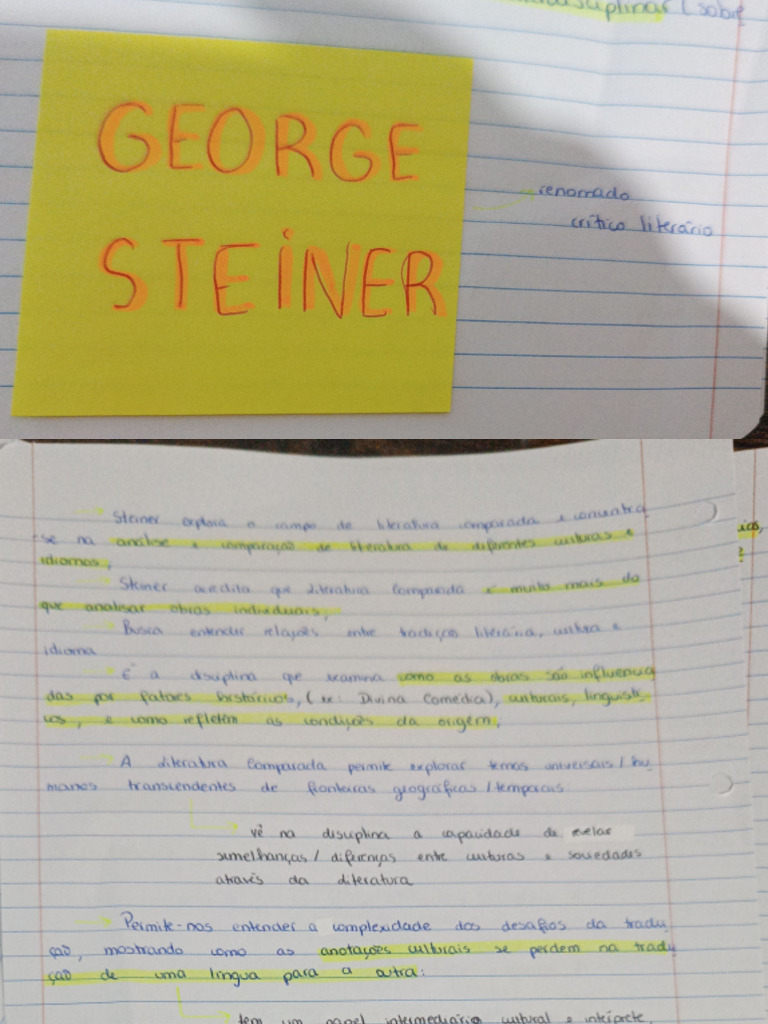 disciplinar (sobre
GEORGE
STEINER
renomado
crítico literário
Steiner explora o campo de literatura comparada e concentra
-se na análise e comparação de literatura de diferentes culturas e
idiomas,
Steiner acredita que Literatura Comparada é muito mais do
que analisar obras individuais,
Busca entender relações entre tradição literária, cultura e
idioma
É a disciplina que examina como as obras são influencia
das por fatores históricos, (ex: Divina Comédia), culturais, linguísti-
cos, e como refletem as condições da origem,
A Literatura Comparada permite explorar temas universais / hu
manos transcendentes de fronteiras geográficas / temporais
vê na disciplina a capacidade de revelar
semelhanças / diferenças entre culturas e sociedades
através da literatura
Permite-nos entender a complexidade dos desafios da tradu
ção, mostrando como as anotações culturais se perdem na tradu
ção de uma língua para a outra:
tem um papel intermediário cultural e intérprete,